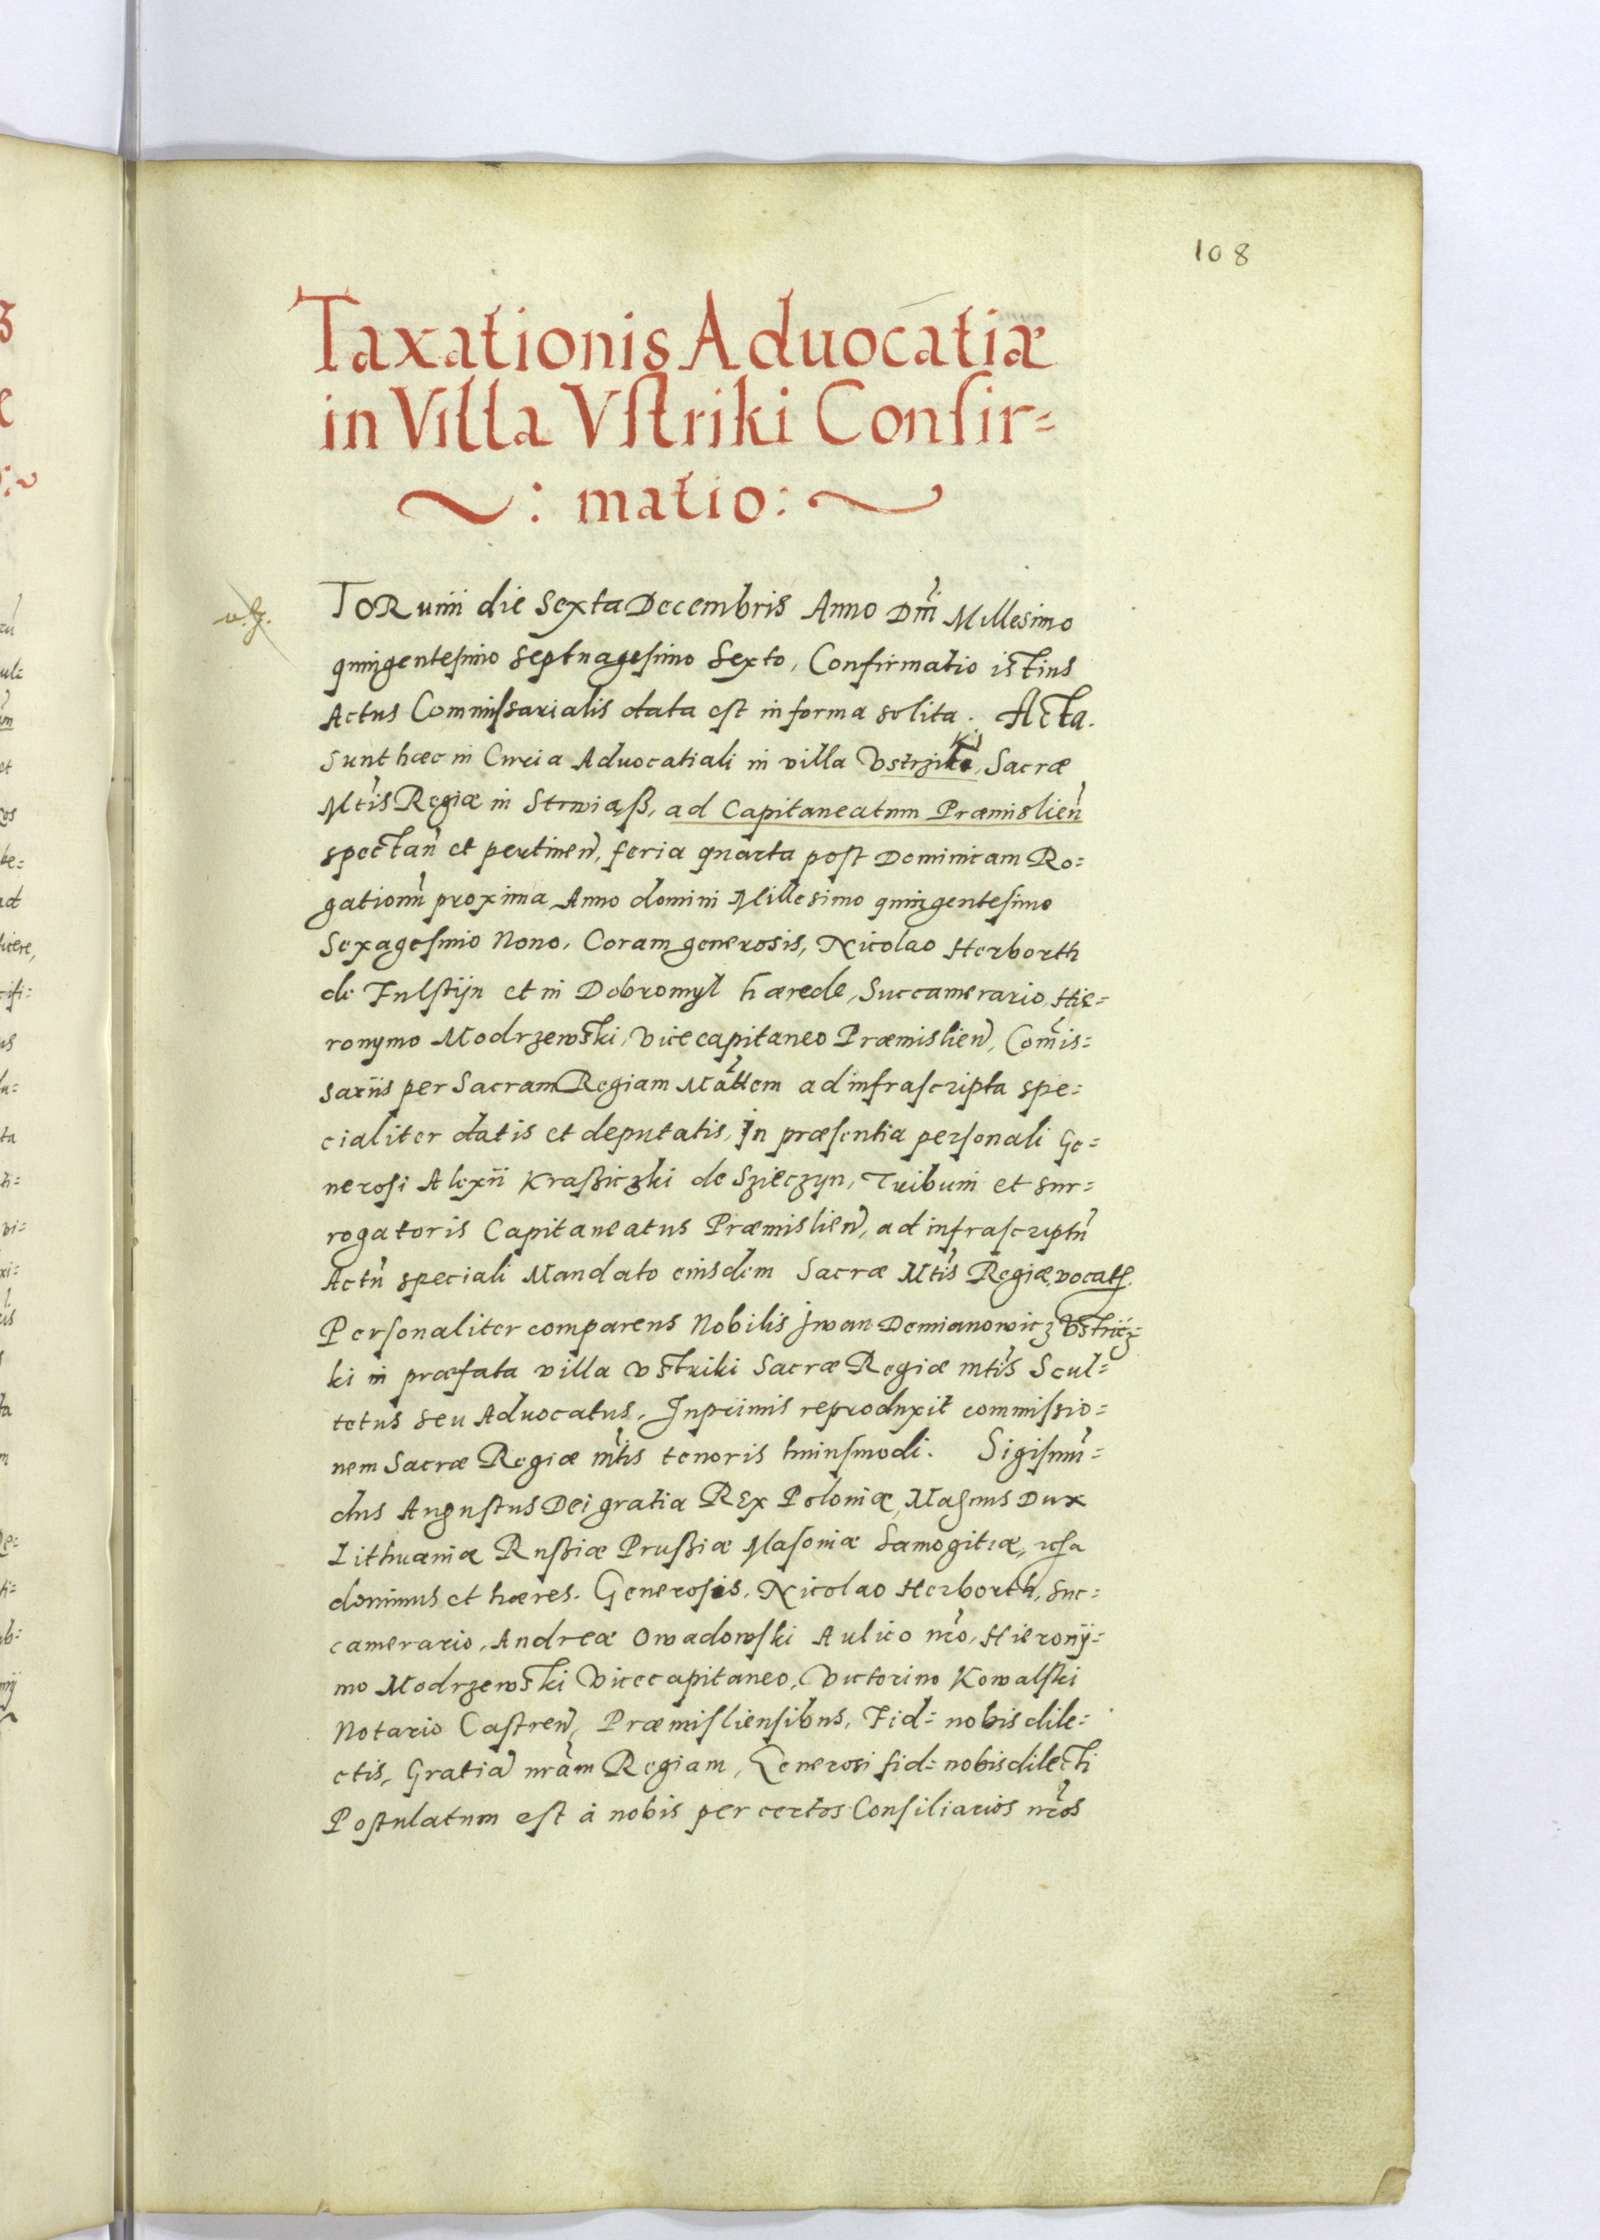 108
Taxationis Aduocatiæ
in Villa Vstriki Confir=
: matio :
TORunii die Sexta Decembris Anno Dnĩ Millesimo
quingentesimo Septuagesimo Sexto, Confirmatio istius
Actus Commissarialis data est in forma solita. Acta
Sunt hæc in Curia Aduocatiali in villa Vstrziki, Sacræ
Mtis Regiæ in Strwiąß, ad Capitaneatum Præmislień
spectań et pertineń, feria quarta post Dominicam Ro=
gationũ proxima, Anno domini Millesimo quingentesimo
Sexagesimo Nono, Coram generosis, Nicolao Herborth
de Fulstijn et in Dobromyl hærede, Succamerario, Hie=
ronymo Modrzewski, Vicecapitaneo Præmislień, Com̃is=
sariis per Sacram Regiam Mattem ad infrascripta spe=
cialiter datis et deputatis, In præsentia personali Ge=
nerosi Alexii Kraßiczki de Szieczyn, Tribuni et sur=
rogatoris Capitaneatus Præmislień, ad infrascriptũ
Actũ speciali Mandato eiusdem Sacræ Mtis Regiæ, vocat
Personaliter comparens Nobilis Iwan Demianowicz Vstricz=
ki in præfata villa Vstriki Sacræ Regiæ mtis Scul=
tetus seu Aduocatus, Inprimis reproduxit commissio=
nem Sacræ Regiæ mtis tenoris huiusmodi. Sigismũ=
dus Augustus Dei gratia REx Poloniæ, Magnus Dux
Lithuaniæ Rußiæ Prußiæ Masoniæ Samogitiæ,
dominus et hæres. Generosis, Nicolao Herborth, Suc=
camerario, Andreæ Owadowski Aulico nr̃o, Hieronij=
mo Modrzewski Vicecapitaneo, Victorino Kowalski
Notario Castreń, Præmisliensibus, Fid= nobis dile=
ctis, Gratiã nr̃am Regiam, Generosi fid= nobis dilecti
Postulatum est à nobis per certos Consiliarios nr̃os